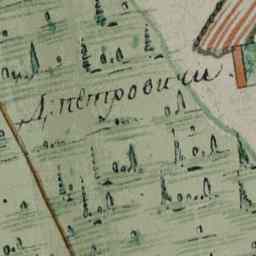 Д: петровичи.